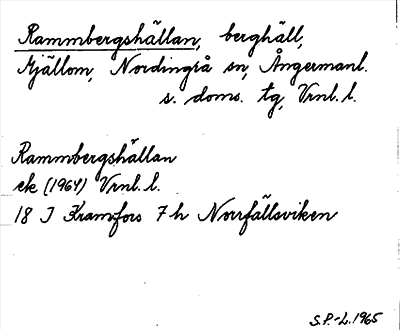 Rammbergshällan, berghäll,
Mjällom, Nordingrå sn, Ångermanl.
s. doms. tg, Vrnl. l.
Rammbergshällan
ek (1964) Vrnl. l.
18 I Kramfors 7 h Norrfällsviken
S.P.-L. 1965